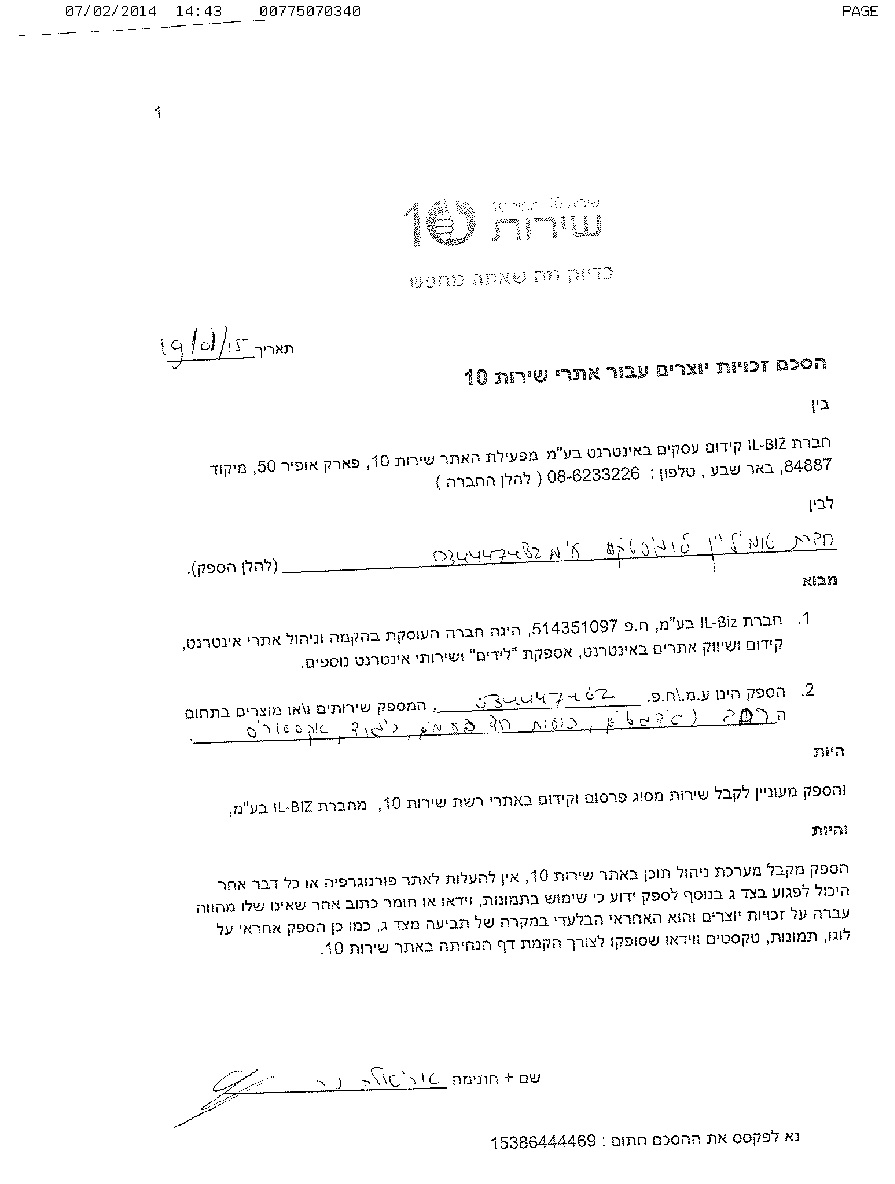 07/02/2014 14:43 00775070340 PAGE
1
שירות 10
בדיוק מה שאתה מחפש
תאריך 19/01/15
הסכם זכויות יוצרים עבור אתרי שירות 10
בין
חברת IL-BIZ קידום עסקים באינטרנט בע"מ מפעילת האתר שירות 10, פארק אופיר 50, מיקוד
84887, באר שבע , טלפון : 08-6233226 ( להלן החברה )
לבין
חברת 034447482 (להלן הספק).
מבוא
1. חברת IL-Biz בע"מ, ח.פ 514351097, הינה חברה העוסקת בהקמה וניהול אתרי אינטרנט,
קידום ושיווק אתרים באינטרנט, אספקת "לידים" ושירותי אינטרנט נוספים.
2. הספק הינו ע.מ\ח.פ. 034447482, המספק שירותים ו\או מוצרים בתחום
ה
היות
והספק מעוניין לקבל שירות מסוג פרסום וקידום באתרי רשת שירות 10, מחברת IL-BIZ בע"מ,
והיות
הספק מקבל מערכת ניהול תוכן באתר שירות 10, אין להעלות לאתר פורנוגרפיה או כל דבר אחר
היכול לפגוע בצד ג בנוסף לספק ידוע כי שימוש בתמונות, וידאו או חומר כתוב אחר שאינו שלו מהווה
עברה על זכויות יוצרים והוא האחראי הבלעדי במקרה של תביעה מצד ג, כמו כן הספק אחראי על
לוגו, תמונות, טקסטים ווידאו שסופקו לצורך הקמת דף הנחיתה באתר שירות 10.
שם + חותימה
נא לפקסס את ההסכם חתום : 15386444469